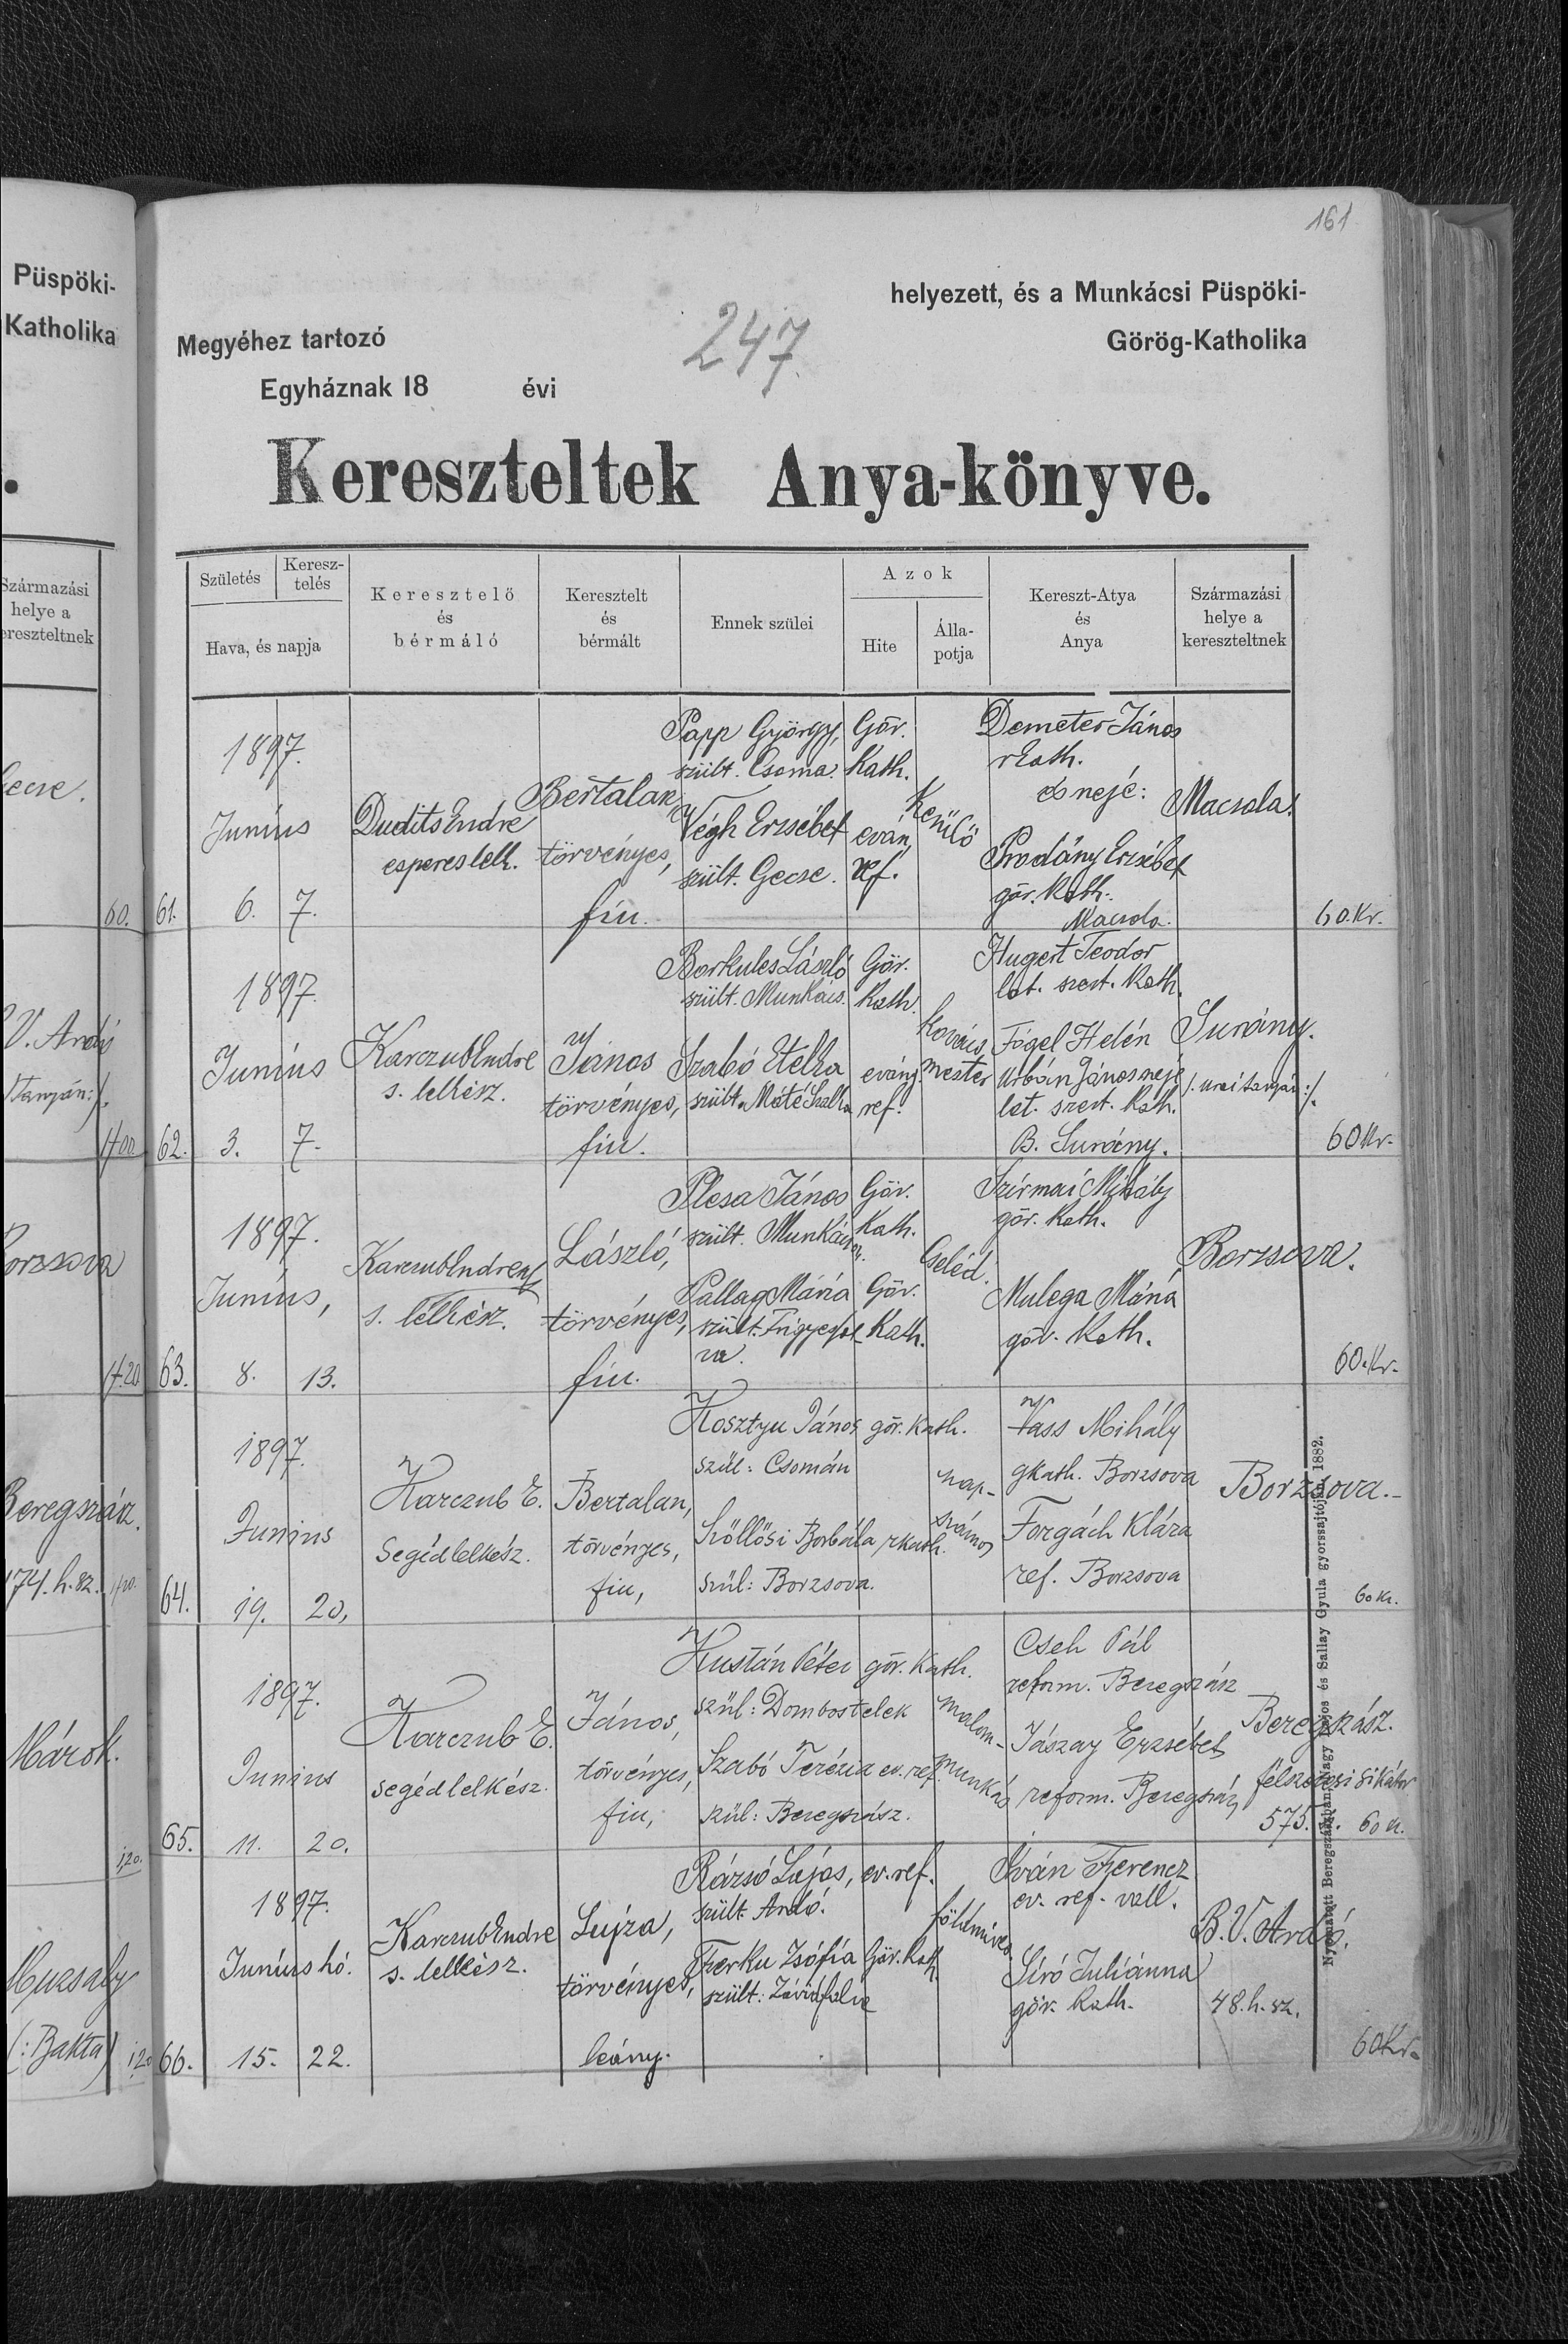 161
Püspöki-
Katholika
helyezett, és a Munkácsi Püspöki-
Megyéhez tartozó
247.
Görög-Katholika
Egyháznak 18 évi
Kereszteltek Anya-könyve.
Származási
helye a
kereszteltnek
Születés
Keresz-
telés
Hava, és napja
Keresztelő
és
bérmáló
Keresztelt
és
bérmált
Ennek szülei
Azok
Hite
Álla-
potja
Kereszt-Atya
és
Anya
Származási
helye a
kereszteltnek
60.
V. Ardó
/tanyán:/.
1f00
Borzsova
1f20
Beregszász.
174. h. sz.
Márok.
1,20.
Muzsaly
(:Bakta)
1,20
61.
1897.
Június
6. 7.
Dudits Endre
esperes lelk.
Bertalan,
törvényes,
fiu.
Papp György,
szült. Csoma.
Végh Erzsébet
szült. Gecse.
Gör.
Kath.
eván,
ref.
Demeter János
rkath.
és neje:
Prodány Erzsébet
gör. Kath.
Macsola.
Macsola.
60. Kr.
62.
1897.
Június
3. 7.
Karczub Endre
s. lelkész.
János
törvényes,
fiu.
Borkules László
szült. Munkács.
Szabó Etelka
szült. Máté Szalka
Gör.
Kath.
eváng.
ref.
Kovács
mester
Hugert Teodor
lat. szert. Kath.
Fógel Helén
Urbán János neje
lat. szert. Kath.
B. Surány.
Surány.
/: urai tanyán :/.
60 Kr.
63.
1897.
Június,
8. 13.
Karczub Endre
s. lelkész.
László,
törvényes,
fiu.
Plesa János
szült. Munkács
Pallag Mária
Gör.
Kath.
Gör.
Kath.
Cseléd.
Szirmai Mihály
gör. Kath.
Mulega Mária
gör. Kath.
Borzsova.
60. Kr.
64.
1897.
Junius
19. 20,
Karczub E.
Segédlelkész.
Bertalan,
törvényes,
fiu,
Kosztyu János
szül: Csomán
Szőllősi Borbála
szül: Borzsova.
gör. Kath.
rkath.
nap-
számos
Vass Mihály
gkath. Borzsova
Forgách Klára
ref. Borzsova
Borzsova.
60 Kr.
65.
1897.
Junius
11. 20.
Karczub E.
segédlelkész.
János,
törvényes,
fiu,
Kustán Péter
szül: Dombostelek
Szabó Terézia
szül: Beregszász.
gör. Kath.
ev. ref.
malom-
munkás
Cseh Pál
reform. Beregszász
Jászay Erzsébet
reform. Beregszász
Beregszász.
575.
60 Kr.
66.
1897.
Június hó.
15. 22.
Karczub Endre
s. lelkész.
Lujza,
törvényes,
leány.
Rázsó Lajos,
szült. Ardó.
Ferku Zsófia
szült: Závidfalva
ev. ref.
Gör. Kath.
földmíves
Iván Ferencz
ev. ref. vall.
Síró Juliánna
gör. Kath.
B. V. Ardó.
48. h. sz.
60 Kr.